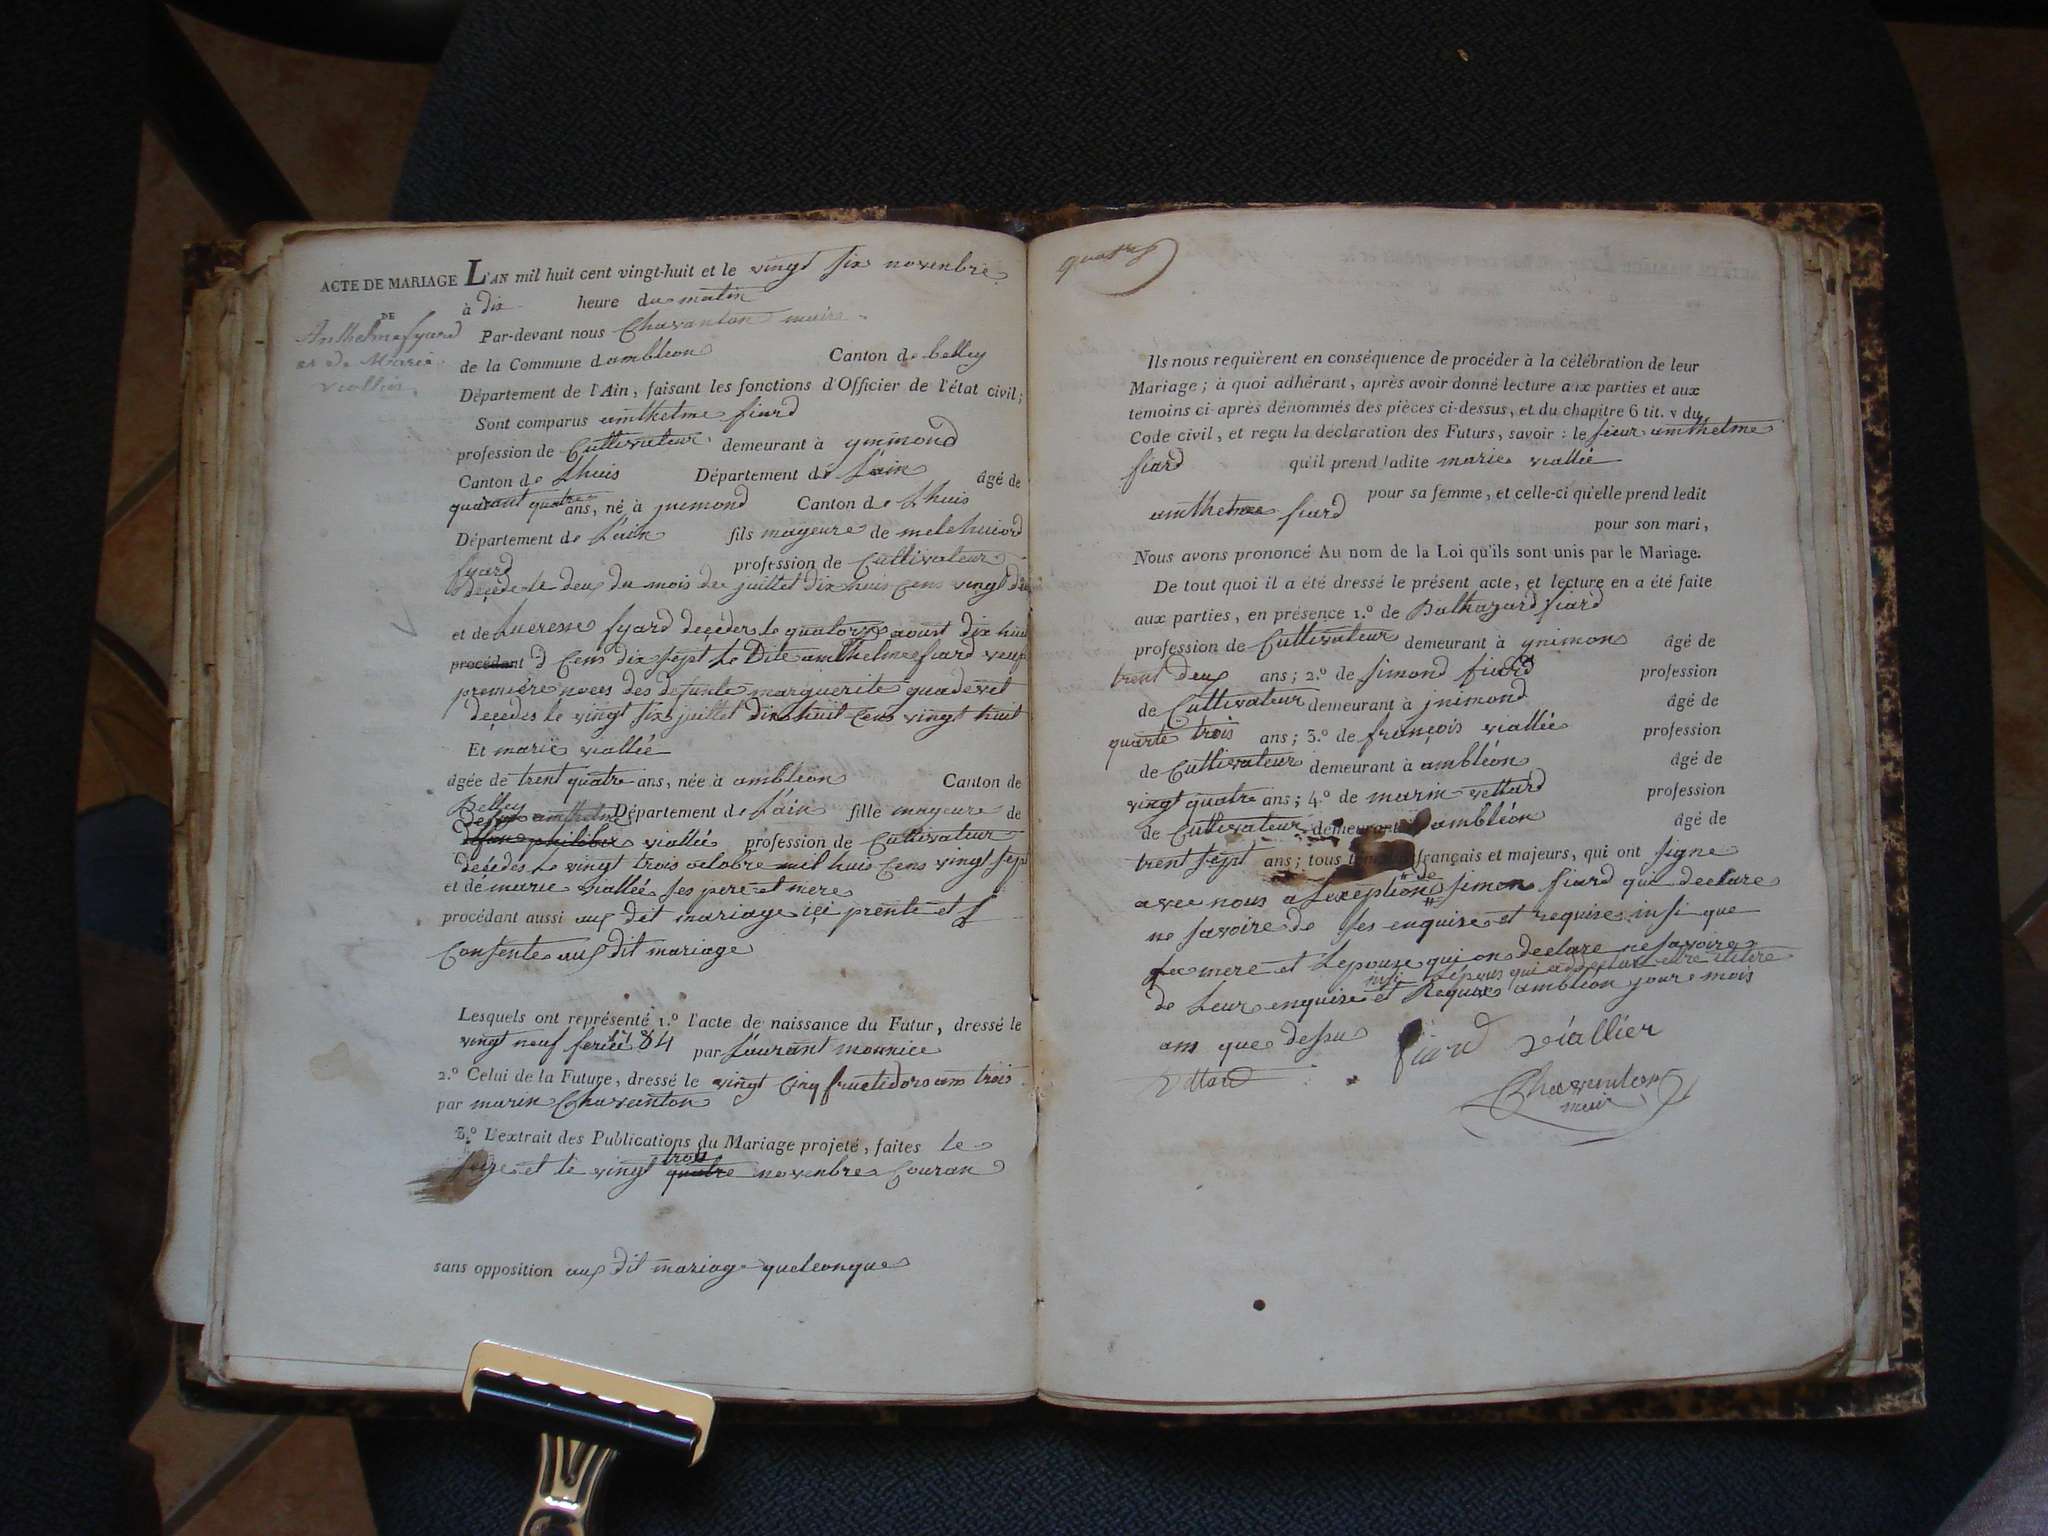 ACTE DE MARIAGE L'AN mil huit cent vingt-huit et le vingt six novenbre
à dix heure du matin
DE
Anthelme fyard
et de Marie
viallier
Par-devant nous Chavanton maire
de la Commune d'ambléon Canton de belley
Département de l'Ain, faisant les fonctions d'Officier de l'état civil;
Sont comparus amthelme fiard
profession de Cultivateur demeurant à ynimond
Canton de Lhuis Département de L'ain âgé de
quarant quatre ans, né à jnimond Canton de Lhuis
Département de L'ain fils mageure de melchuiord
fyard profession de Cultivateur
décede le deux du mois de juillet dix huis Cens vingt
et de Lucresse fyard deçéder le quatorze aoust dix huit
procédant Cens dix sept Le Dite amthelme fiard veuf
première noces des defunte marguerite quadevet
deçedes le vingt six juillet dix huit Cens vingt huit
Et marie viallée
âgée de trent quatre ans, née à ambléon Canton de
Belley Département de L'ain fille mageure de
philiber viallée profession de Cultivateur
deçédes le vingt trois octobre mil huis Cens vingt sept
et de marie viallée ses pere et mere
procédant aussi aux dit mariage içi prente et
Consente aux dit mariage
Lesquels ont représenté 1.º l'acte de naissance du Futur, dressé le
vingt neuf 84 par Laurant mounice
2.º Celui de la Future, dressé le vingt Cinq fructidors am trois
par marin Chavanton
3.º L'extrait des Publications du Mariage projeté, faites le
seize et le vingt quatre trois novenbre Couran
sans opposition aux dit mariage quelconque
quatre
Ils nous requièrent en conséquence de procéder à la célébration de leur
Mariage; à quoi adhérant, après avoir donné lecture aux parties et aux
témoins ci-après dénommés des pièces ci-dessus, et du chapitre 6 tit. v du
Code civil, et reçu la déclaration des Futurs, savoir : le sieur amthelme
fiard qu'il prend ladite marie viallée
pour sa femme, et celle-ci qu'elle prend ledit
amthelme fiard pour son mari,
Nous avons prononcé Au nom de la Loi qu'ils sont unis par le Mariage.
De tout quoi il a été dressé le présent acte, et lecture en a été faite
aux parties, en présence 1.º de Balthazard fiard
profession de Cultivateur demeurant à ynimon âgé de
trent deux ans; 2.º de simond fiard profession
de Cultivateur demeurant à jnimond âgé de
quarte trois ans; 3.º de françois viallée profession
de Cultivateur demeurant à ambléon âgé de
vingt quatre ans; 4.º de marin vettard profession
de Cultivateur demeurant à ambléon âgé de
trent sept ans; tous témoins français et majeurs, qui ont signe
avec nous a Lexeption de simon fiard qui declare
ne savoire de fes enquise et requise insi que
La mere et Lepouse qui on declare ne savoire
insi Lépous qui a declare
de Leur enquise et Requise ambléon jour mois
am que dessu fiard viallier
Vettard
Chavanton
maire